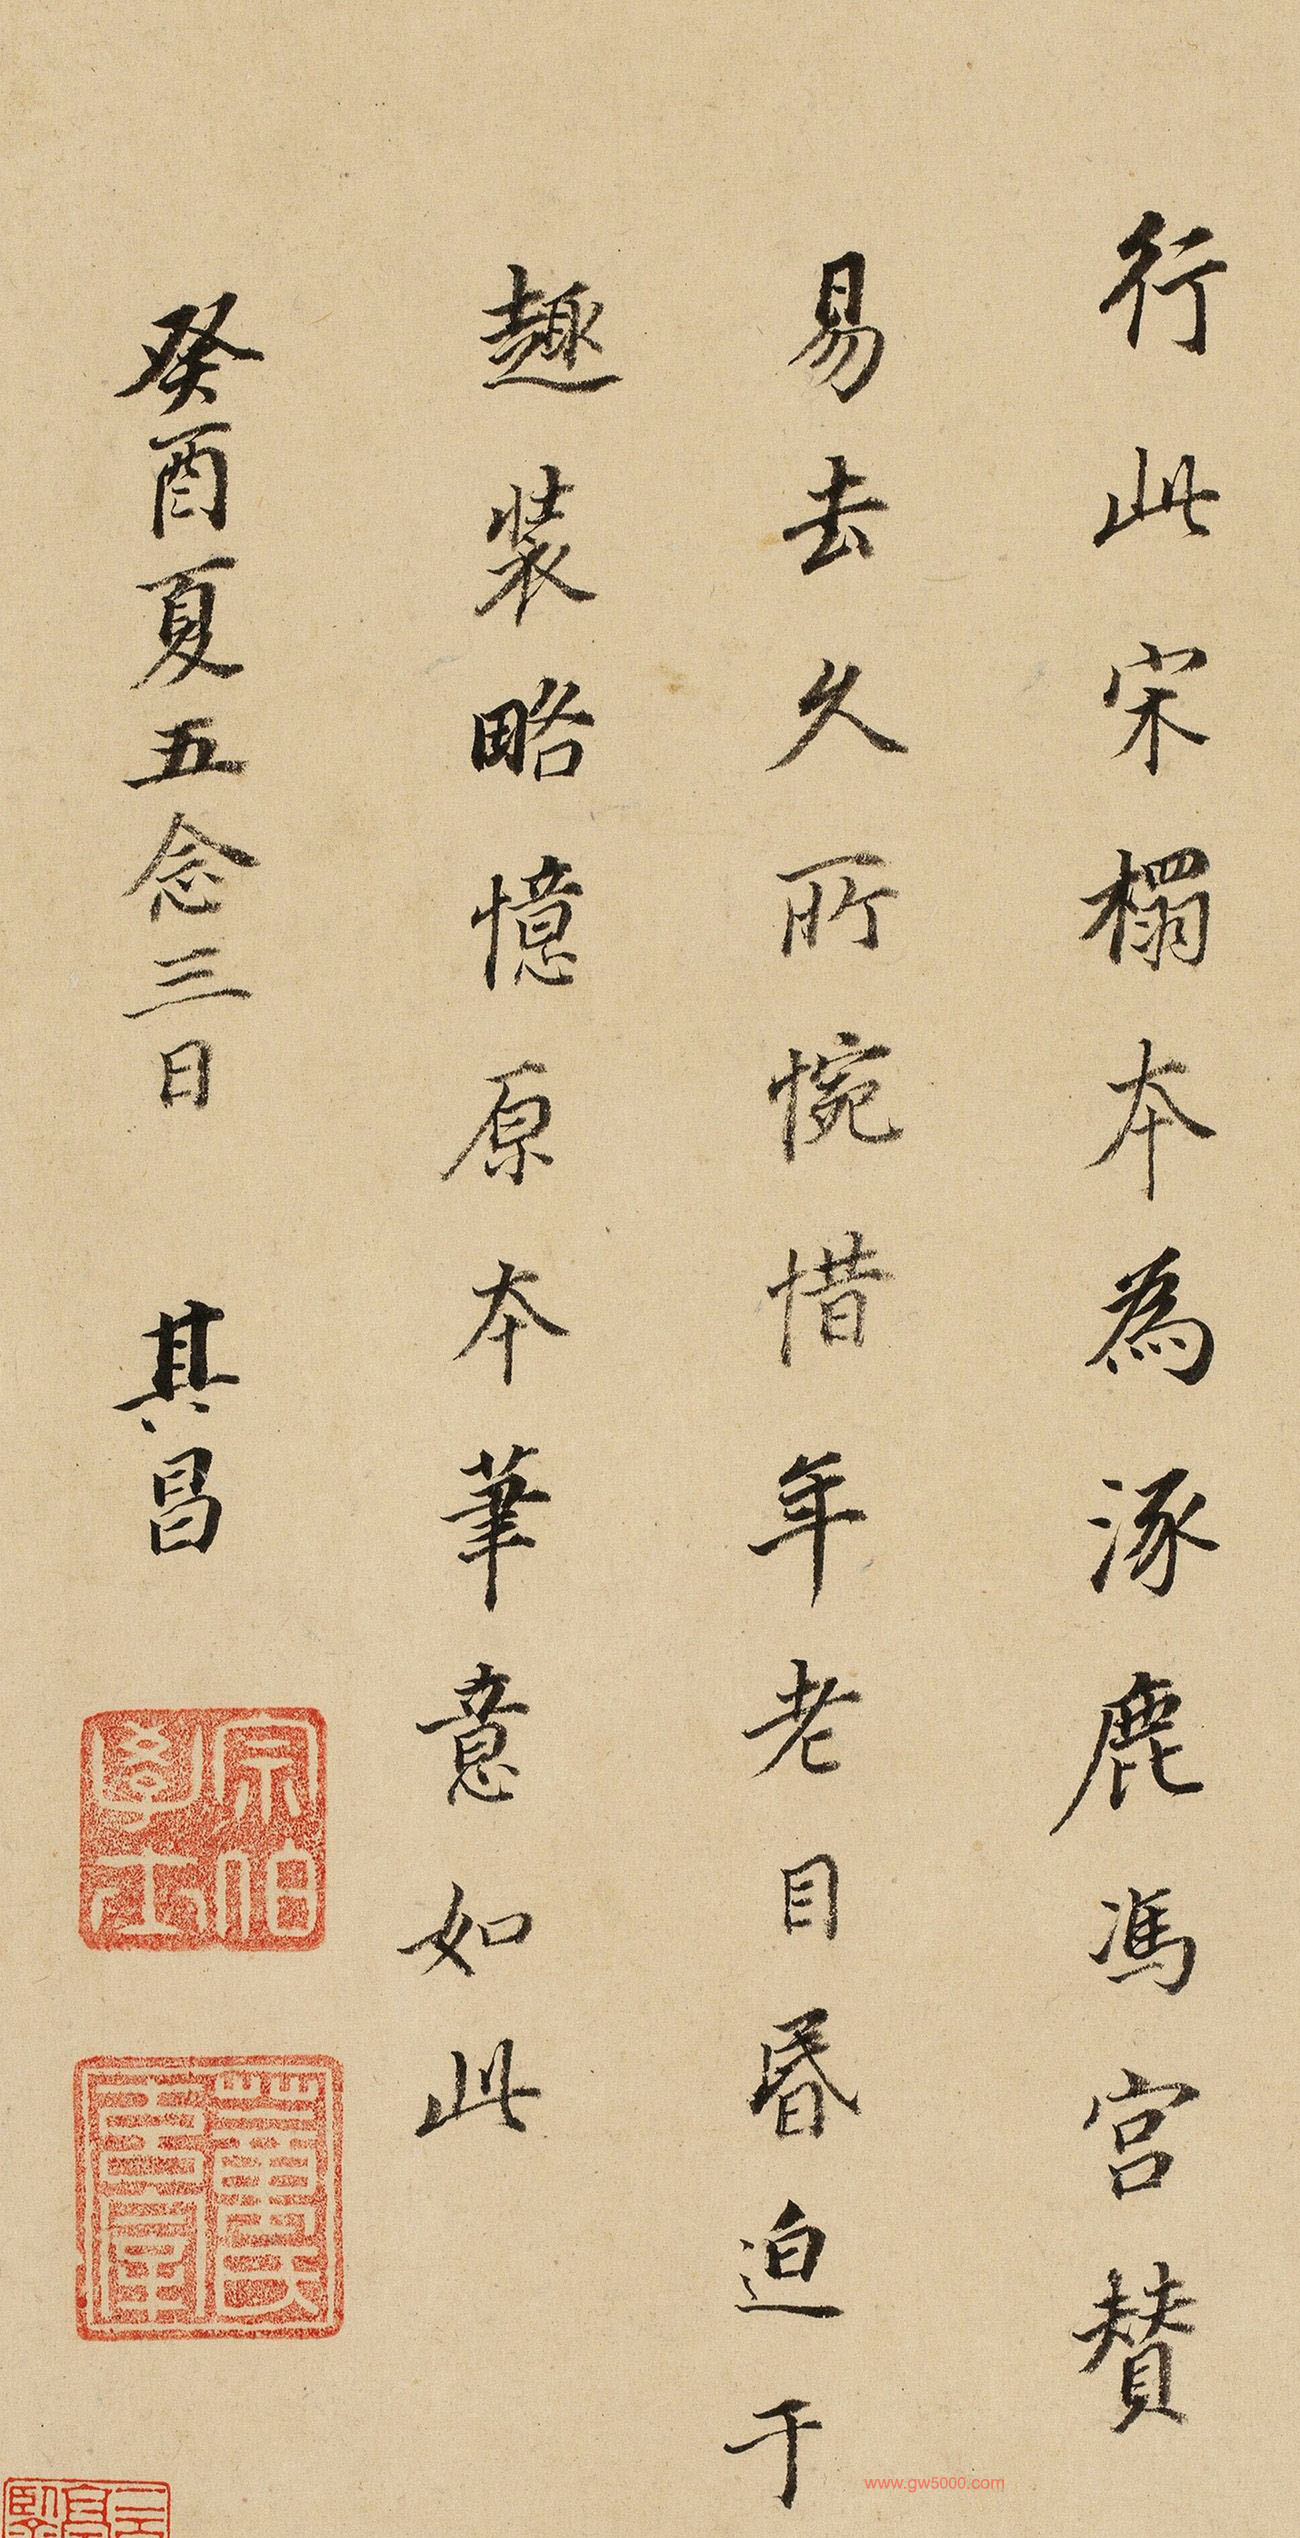 行此宋榻本為涿鹿馮宮贊
易去久所惋惜年老目昏迫于
趣裝略憶原本筆意如此
癸酉夏五念三日 其昌
宗伯學士
www.gw5000.com